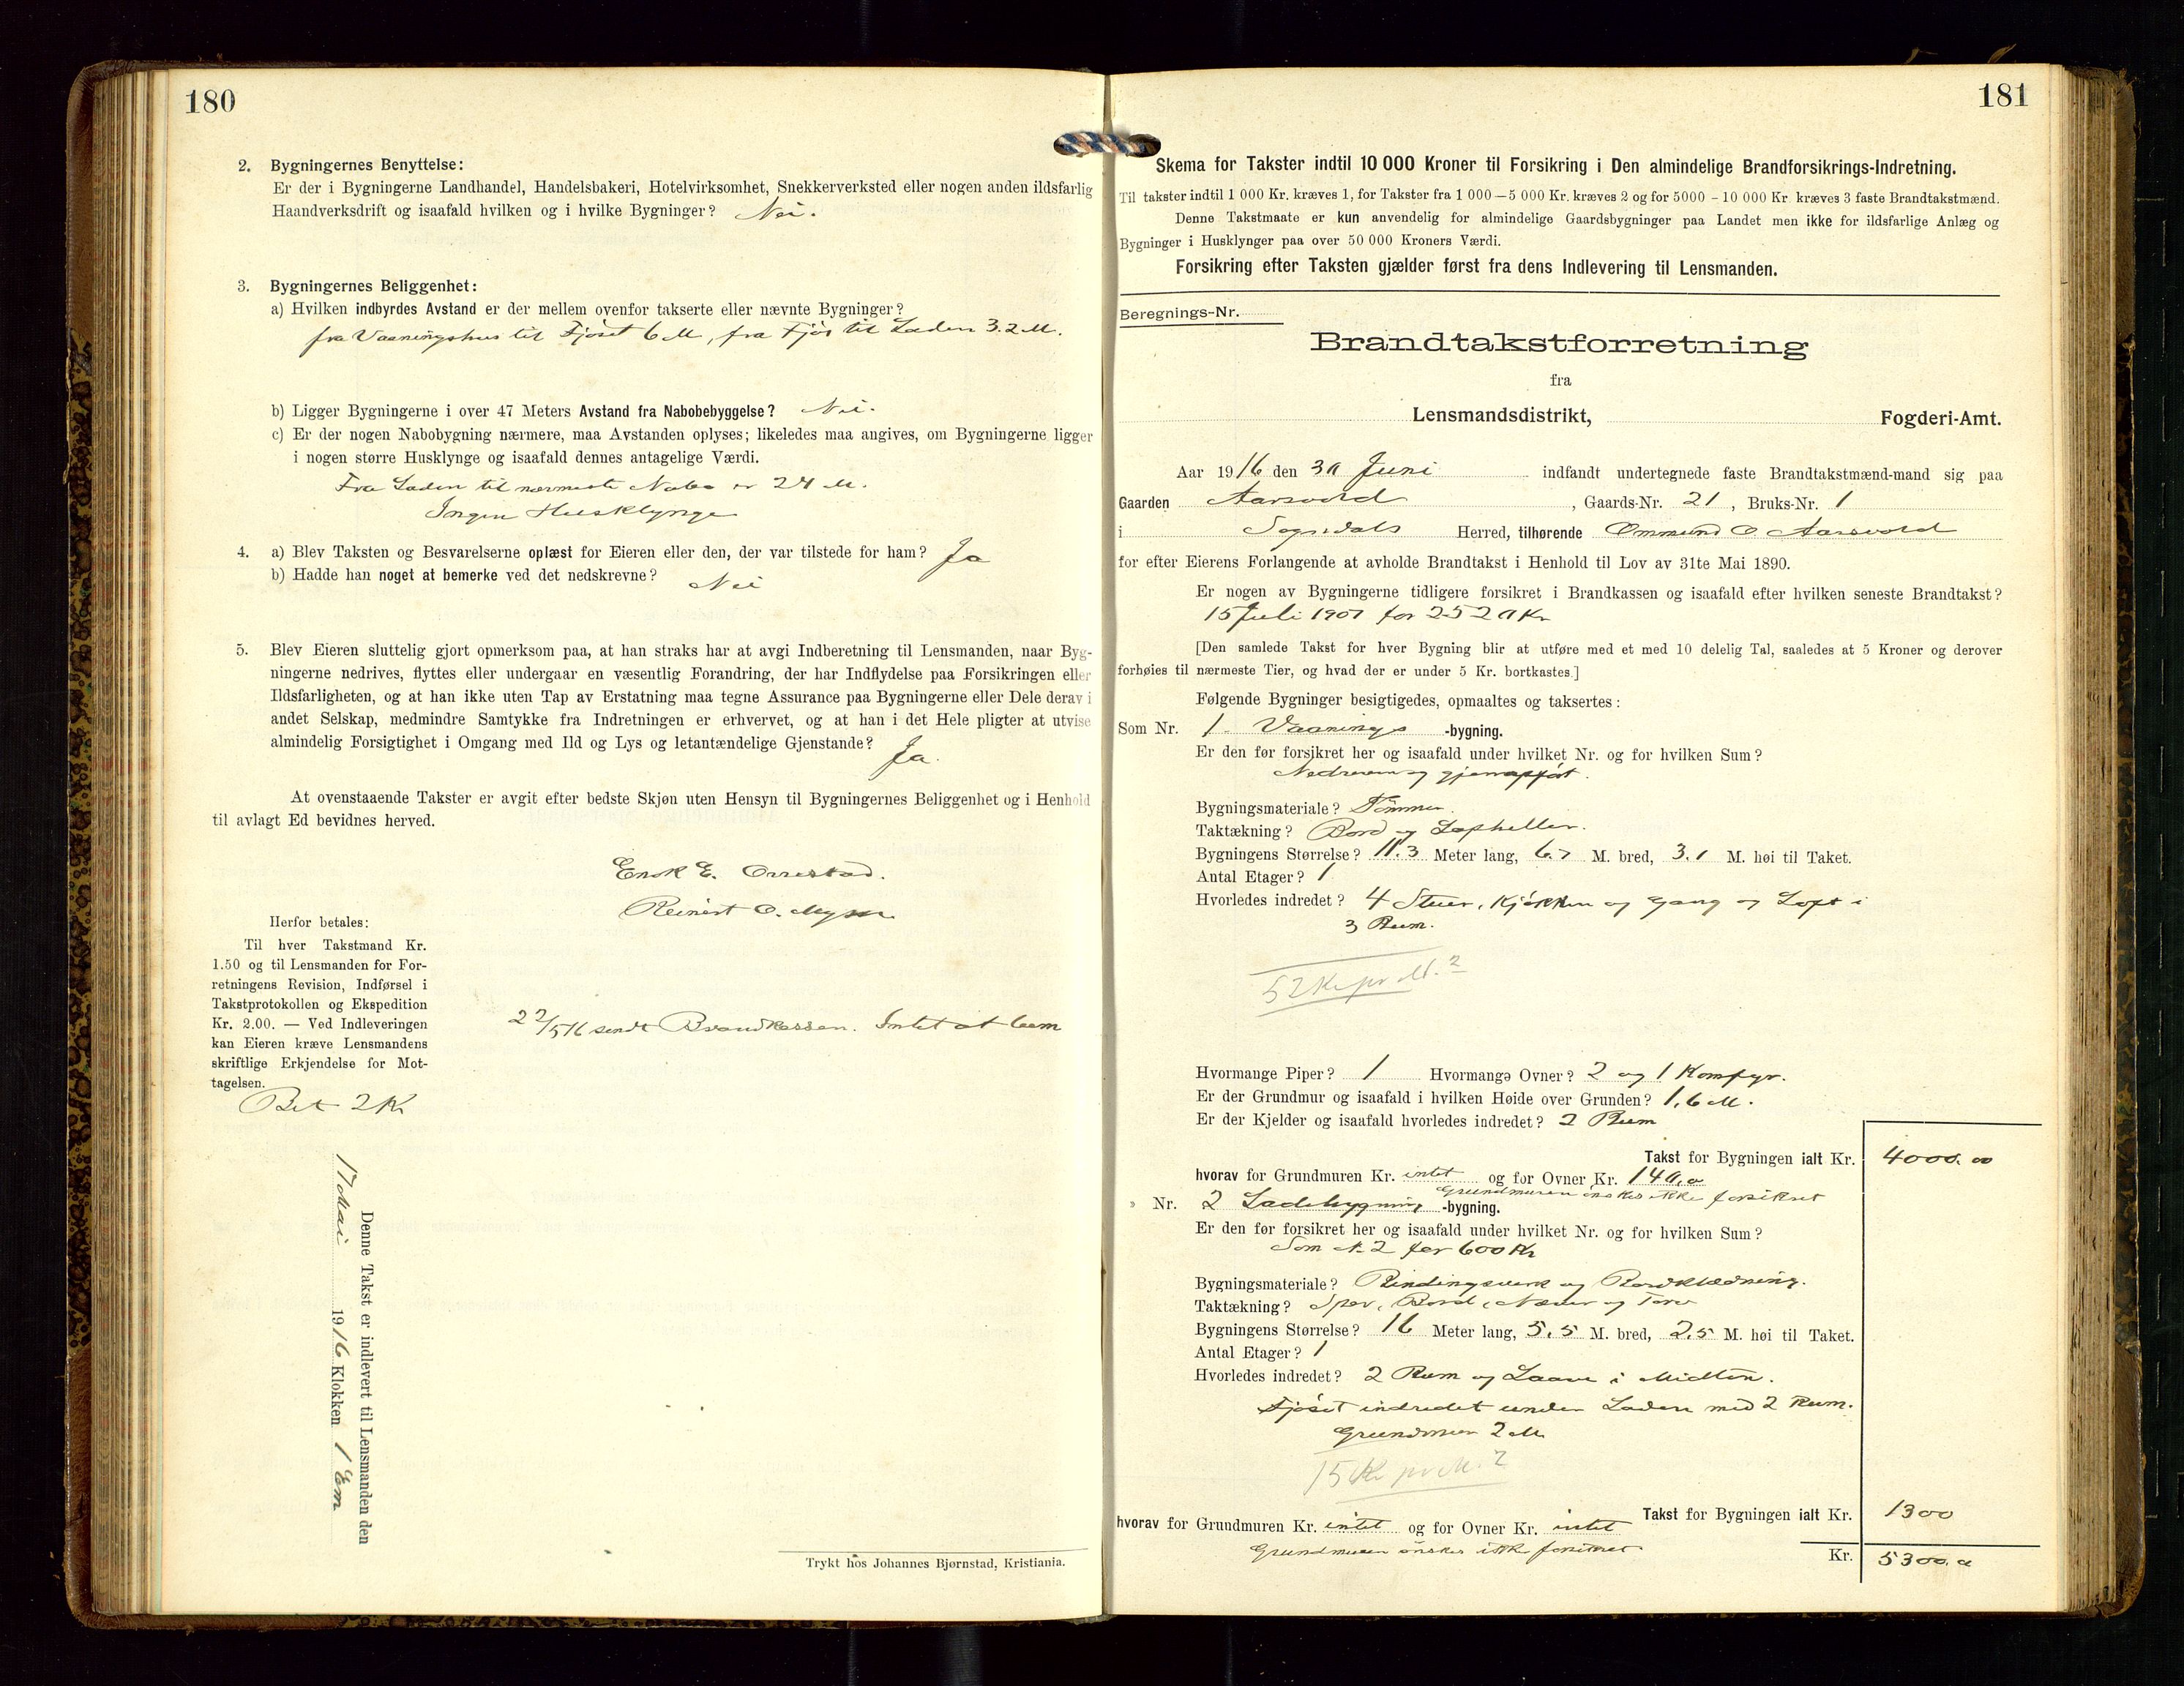 180
2. Bygningernes Benyttelse:
Er der i Bygningerne Landhandel, Handelsbakeri, Hotelvirksomhet, Snekkerverksted eller nogen anden ildsfarlig
Haandverksdrift og isaafald hvilken og i hvilke Bygninger? Nei.
3. Bygningernes Beliggenhet:
a) Hvilken indbyrdes Avstand er der mellem ovenfor takserte eller nævnte Bygninger?
fra Vaaningshus til Fjøset 6 M, fra Fjøs til Laden 3.2 M.
b) Ligger Bygningerne i over 47 Meters Avstand fra Nabobebyggelse? Nei.
c) Er der nogen Nabobygning nærmere, maa Avstanden oplyses; likeledes maa angives, om Bygningerne ligger
i nogen større Husklynge og isaafald dennes antagelige Værdi.
Fra Laden til nærmeste Nabo er 24 M.
Ingen Husklynge
4. a) Blev Taksten og Besvarelserne oplæst for Eieren eller den, der var tilstede for ham? Ja
b) Hadde han noget at bemerke ved det nedskrevne? Nei
5. Blev Eieren sluttelig gjort opmerksom paa, at han straks har at avgi Indberetning til Lensmanden, naar Byg-
ningerne nedrives, flyttes eller undergaar en væsentlig Forandring, der har Indflydelse paa Forsikringen eller
Ildsfarligheten, og at han ikke uten Tap av Erstatning maa tegne Assurance paa Bygningerne eller Dele derav i
andet Selskap, medmindre Samtykke fra Indretningen er erhvervet, og at han i det Hele pligter at utvise
almindelig Forsigtighet i Omgang med Ild og Lys og letantændelige Gjenstande? Ja.
At ovenstaaende Takster er avgit efter bedste Skjøn uten Hensyn til Bygningernes Beliggenhet og i Henhold
til avlagt Ed bevidnes herved.
Enok E. Orrestad.
Reinert O.
Herfor betales:
Til hver Takstmand Kr.
1.50 og til Lensmanden for For-
retningens Revision, Indførsel i
Takstprotokollen og Ekspedition
Kr. 2.00. — Ved Indleveringen
kan Eieren kræve Lensmandens
skriftlige Erkjendelse for Mot-
tagelsen.
Bet 2 Kr
22/5 16 sendt Brandkassen. Intet at bem
Denne Takst er indlevert til Lensmanden den
17 Mai 1916 Klokken 1 Em
Trykt hos Johannes Bjørnstad, Kristiania.
181
Skema for Takster indtil 10 000 Kroner til Forsikring i Den almindelige Brandforsikrings-Indretning.
Til takster indtil 1 000 Kr. kræves 1, for Takster fra 1 000—5 000 Kr. kræves 2 og for 5000 - 10 000 Kr. kræves 3 faste Brandtakstmænd.
Denne Takstmaate er kun anvendelig for almindelige Gaardsbygninger paa Landet men ikke for ildsfarlige Anlæg og
Bygninger i Husklynger paa over 50 000 Kroners Værdi.
Forsikring efter Taksten gjælder først fra dens Indlevering til Lensmanden.
Beregnings-Nr.
Brandtakstforretning
fra
Lensmandsdistrikt, Fogderi-Amt.
Aar 1916 den 30 Juni indfandt undertegnede faste Brandtakstmænd-mand sig paa
Gaarden Aarsvold, Gaards-Nr. 21, Bruks-Nr. 1
i Sogndals Herred, tilhørende Ommund O. Aarsvold
for efter Eierens Forlangende at avholde Brandtakst i Henhold til Lov av 31te Mai 1890.
Er nogen av Bygningerne tidligere forsikret i Brandkassen og isaafald efter hvilken seneste Brandtakst?
15 Juli 1907 for 2520 Kr
[Den samlede Takst for hver Bygning blir at utføre med et med 10 delelig Tal, saaledes at 5 Kroner og derover
forhøies til nærmeste Tier, og hvad der er under 5 Kr. bortkastes.]
Følgende Bygninger besigtigedes, opmaaltes og taksertes:
Som Nr. 1 Vaanings -bygning.
Er den før forsikret her og isaafald under hvilket Nr. og for hvilken Sum?
Nedreven og gjenopført.
Bygningsmateriale? Tømmer.
Taktækning? Bord og Lapheller.
Bygningens Størrelse? 11.3 Meter lang, 6.7 M. bred, 3.1 M. høi til Taket.
Antal Etager? 1
Hvorledes indredet? 4 Stuer, Kjøkken og Gang og Loft i
3 Rum.
52 Kr pr M.2
Hvormange Piper? 1 Hvormange Ovner? 2 og 1 Komfyr.
Er der Grundmur og isaafald i hvilken Høide over Grunden? 1,6 M.
Er der Kjelder og isaafald hvorledes indredet? 2 Rum
Takst for Bygningen ialt Kr. 4000.00
hvorav for Grundmuren Kr. intet og for Ovner Kr. 140,0
Grundmuren ønskes ikke forsikret
» Nr. 2 Ladebygning -bygning.
Er den før forsikret her og isaafald under hvilket Nr. og for hvilken Sum?
Som N. 2 for 600 Kr
Bygningsmateriale? Bindingsverk og Bordklædning.
Taktækning? Sper, Bord, Næver og Torv
Bygningens Størrelse? 16 Meter lang, 5,5 M. bred, 2,5 M. høi til Taket.
Antal Etager? 1
Hvorledes indredet? 2 Rum og Laave i Midten.
Fjøset indredet under Laden med 2 Rum.
Grundmur 2 M
15 Kr pr M.2
Takst for Bygningen ialt Kr. 1300
hvorav for Grundmuren Kr. intet og for Ovner Kr. intet
Grundmuren ønskes ikke forsikret
Kr. 5300.0